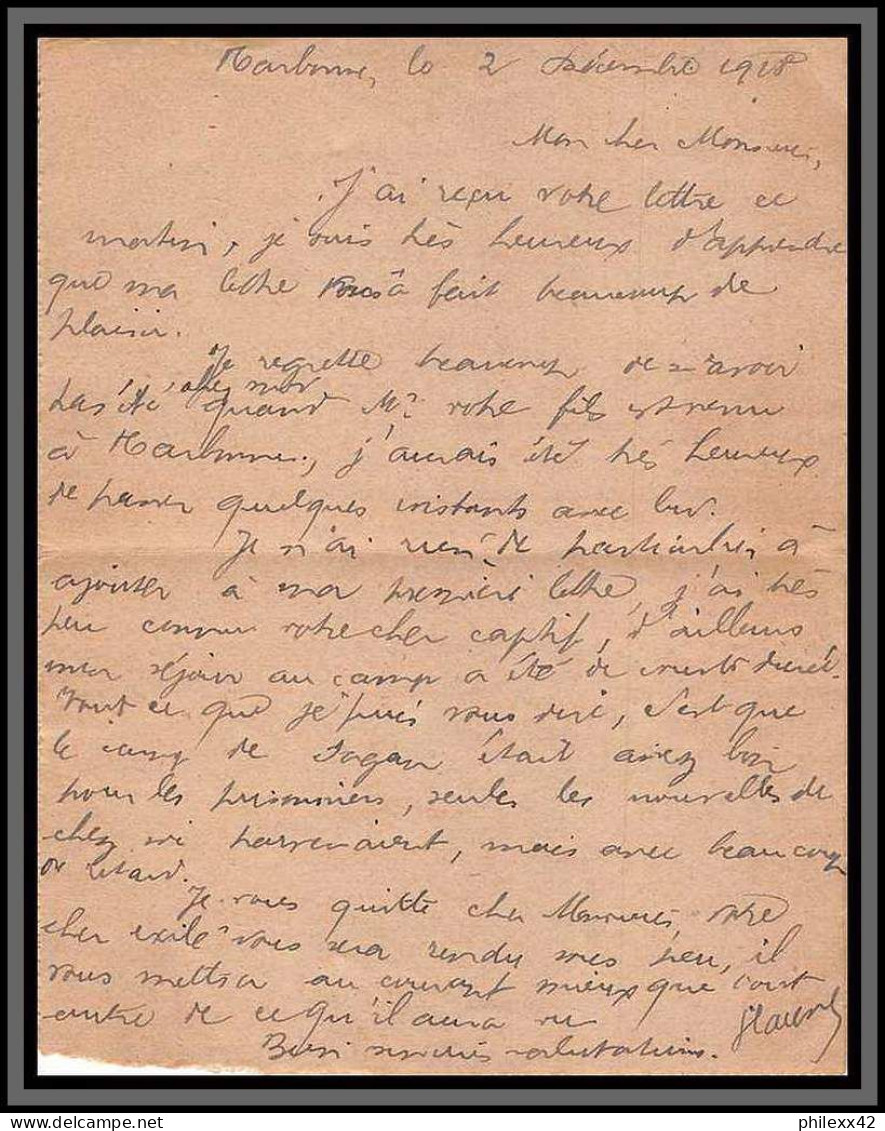 Narbonne, le 2 Décembre 1918
Mon cher Monsieur,
J'ai reçu votre lettre ce
matin, je suis très heureux d'apprendre
que ma lettre vous a fait beaucoup de
plaisir.
Je regrette beaucoup de n'avoir
pas été chez moi quand Mr votre fils est venu
à Narbonne, j'aurais été très heureux
de passer quelques instants avec lui.
Je n'ai rien de particulier à
ajouter à ma première lettre, j'ai très
peu connu votre cher captif, d'ailleurs
mon séjour au camp a été de courte durée.
Tout ce que je puis vous dire, c'est que
le camp de Sagan était assez bon
pour les prisonniers, seules les nouvelles de
chez soi parvenaient, mais avec beaucoup
de retard.
Je vous quitte cher Monsieur, votre
cher exilé vous sera rendu sous peu, il
vous mettra au courant mieux que tout
autre de ce qu'il aura vu
Bien sincères salutations.
philexx42